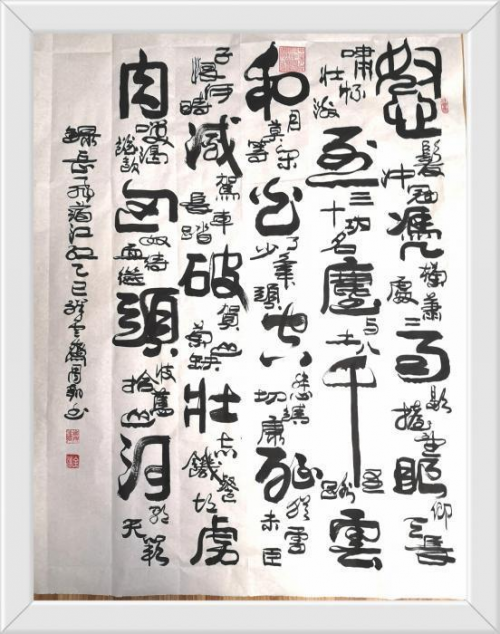 怒髮沖冠憑欄處蕭〻雨歇擡望眼仰天長
嘯壯懷激烈三十功名塵與土八千里路雲
和月莫等閒白了少年頭空悲切靖康恥猶未雪臣
子恨何時滅駕長車踏破賀蘭山缺壯志飢餐胡虜
肉笑談渴飲匈奴血待從頭收拾舊山河朝天闕
錄岳飛滿江紅乙巳雲齋周書